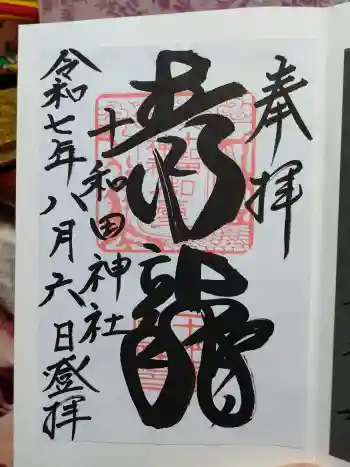 奉拝
青龍
十和田神社
令和七年八月六日登拝